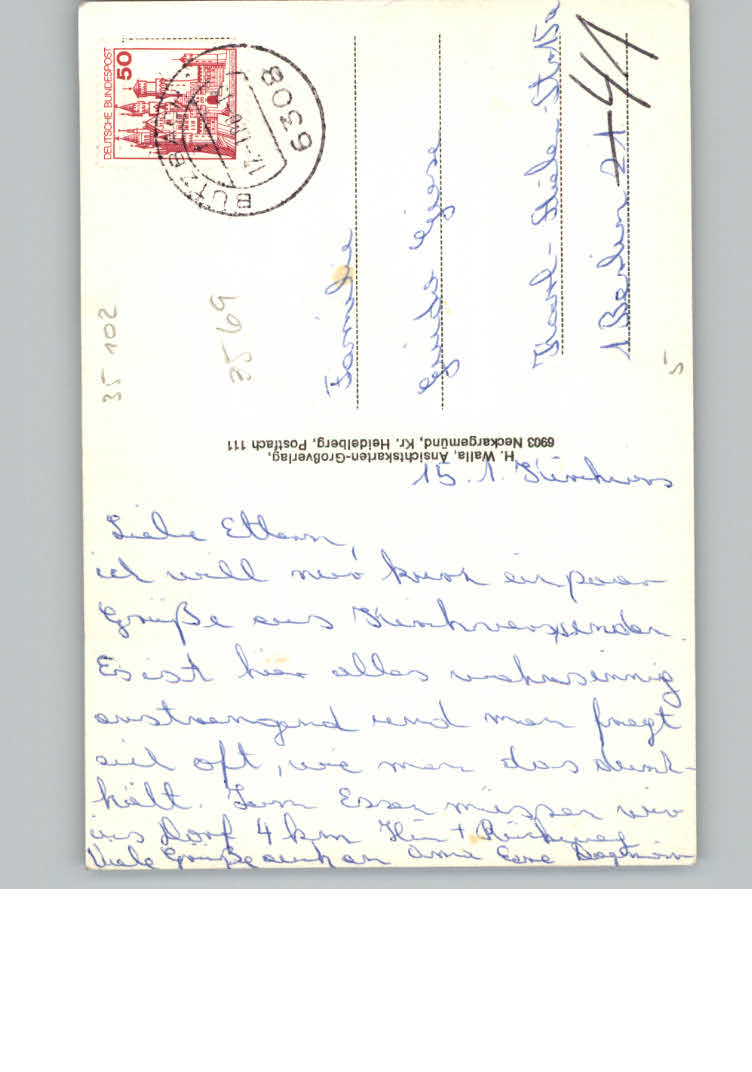 DEUTSCHE BUNDESPOST
50
BUTZBACH
6308
Familie
Guido Giese
Karl-Stieler-Str. 15a
1 Berlin 21 41
35 102
3569
5
H. Walla, Ansichtskarten-Großverlag,
6903 Neckargemünd, Kr. Heidelberg, Postfach 111
15. 1.
Liebe Eltern,
ich will nur kurz ein paar
Grüße aus
Es ist hier alles wahnsinnig
anstrengend und man fragt
sich oft, wie man das durch-
hält. Zum Essen müssen wir
ins Dorf 4 km Hin + Rückweg
Viele Grüße auch an Oma Eure Dagmar